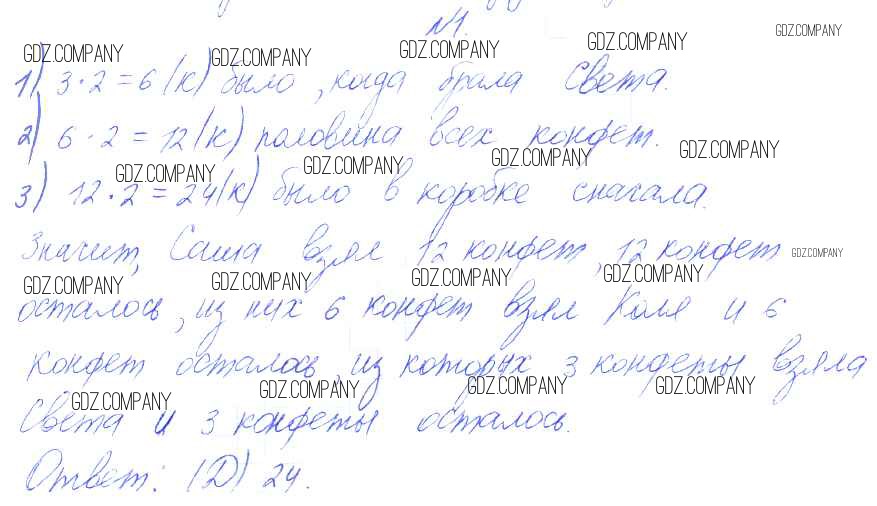 №1.
GDZ.COMPANY GDZ.COMPANY GDZ.COMPANY GDZ.COMPANY GDZ.COMPANY
1) 3·2=6(к) было, когда брала Света.
2) 6·2=12(к) половина всех конфет.
GDZ.COMPANY GDZ.COMPANY GDZ.COMPANY GDZ.COMPANY
3) 12·2=24(к) было в коробке сначала.
Значит, Саша взял 12 конфет, 12 конфет GDZ.COMPANY
GDZ.COMPANY GDZ.COMPANY GDZ.COMPANY GDZ.COMPANY
осталось, из них 6 конфет взял Коля и 6
конфет осталось, из которых 3 конфеты взяла
GDZ.COMPANY GDZ.COMPANY GDZ.COMPANY GDZ.COMPANY
Света и 3 конфеты осталось.
Ответ: (D) 24.